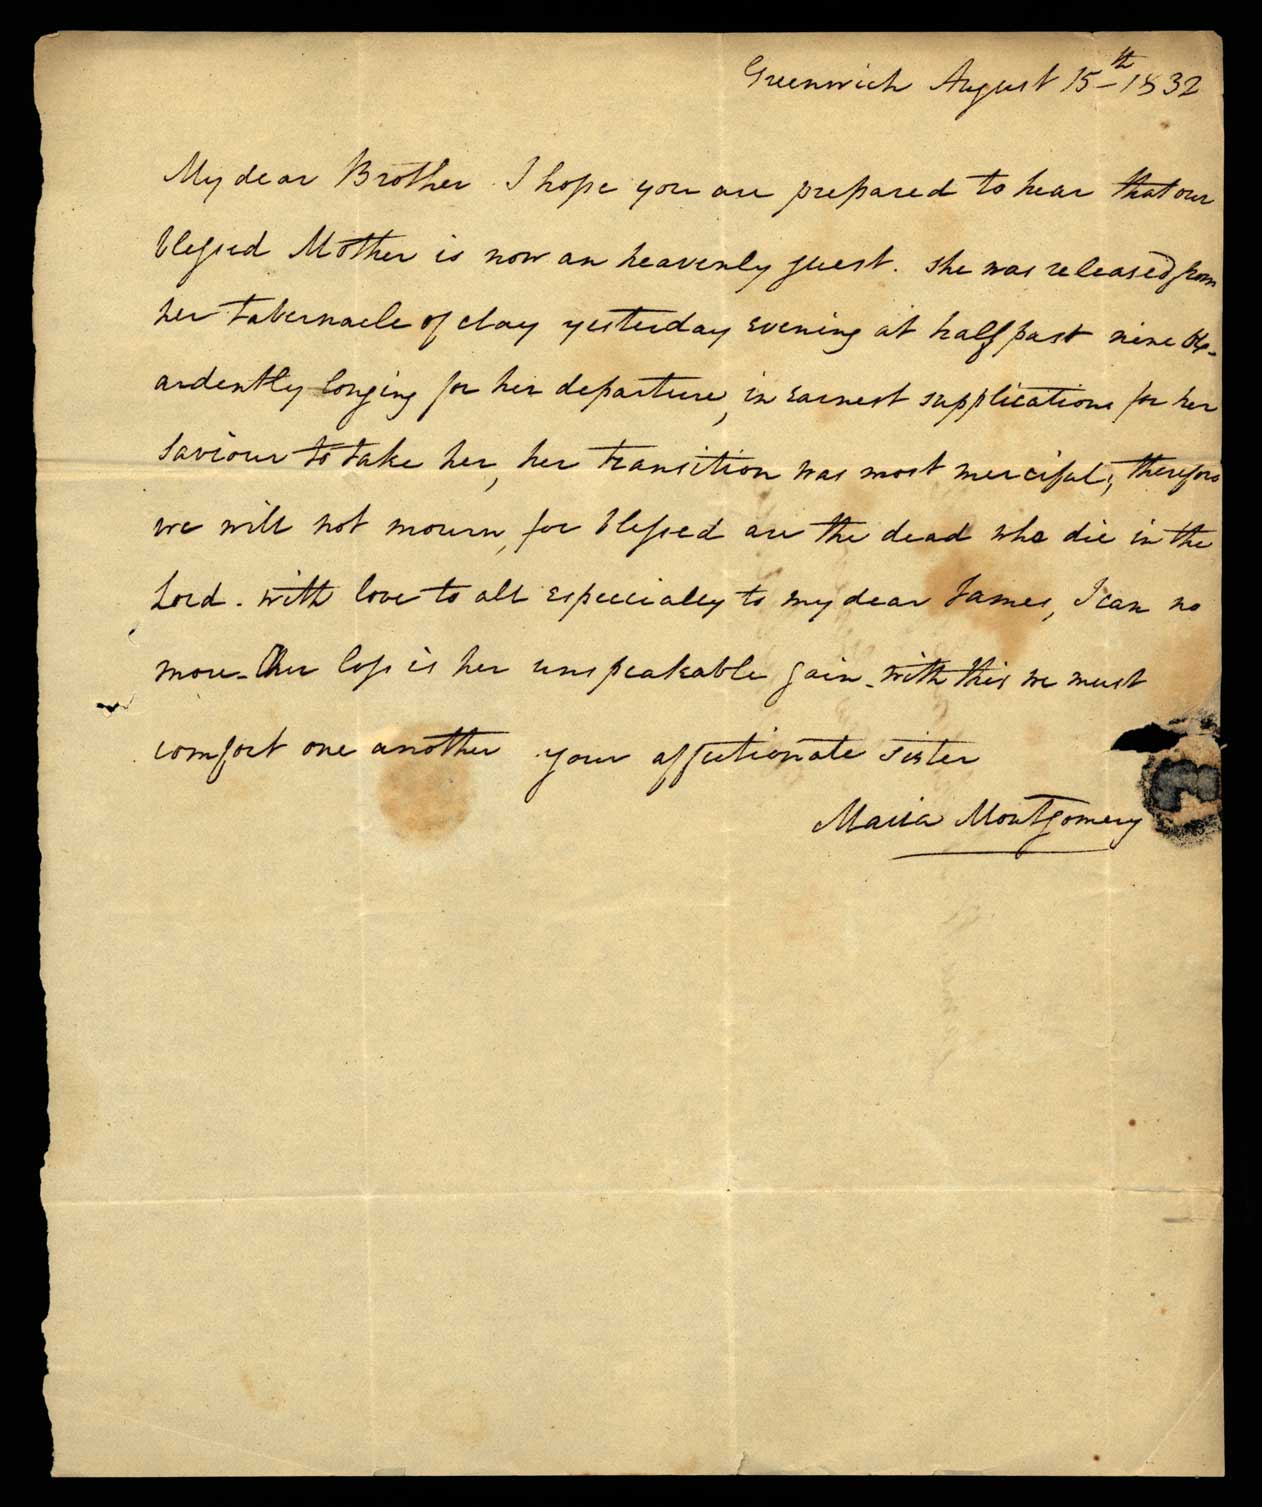 Greenwich August 15th 1832
My dear Brother I hope you are prepared to hear that our
blessed Mother is now an heavenly guest. she was released from
her tabernacle of clay yesterday evening at half past nine
ardently longing for her departure, in earnest supplications for her
Saviour to take her, her transition was most merciful; therefore
we will not mourn, for blessed are the dead who die in the
Lord. with love to all especially to my dear James, I can no
more - Our loss is her unspeakable gain - with this we must
comfort one another your affectionate sister
Maria Montgomery